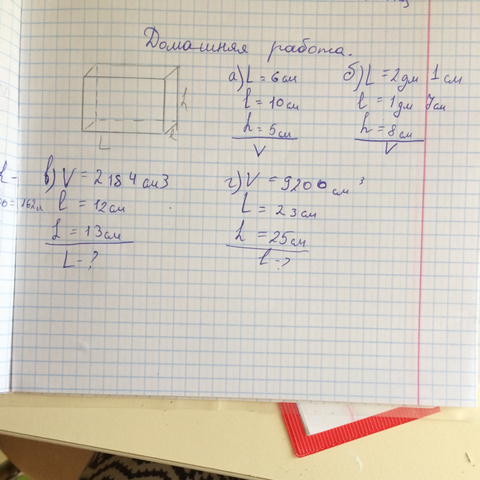 Домашняя работа.
h
L
l
а) L = 6 см
l = 10 см
h = 5 см
V
б) L = 2 дм 1 см
l = 1 дм 7 см
h = 8 см
V
в) V = 2184 см3
l = 12 см
h = 13 см
L - ?
г) V = 9200 см³
L = 23 см
h = 25 см
l - ?